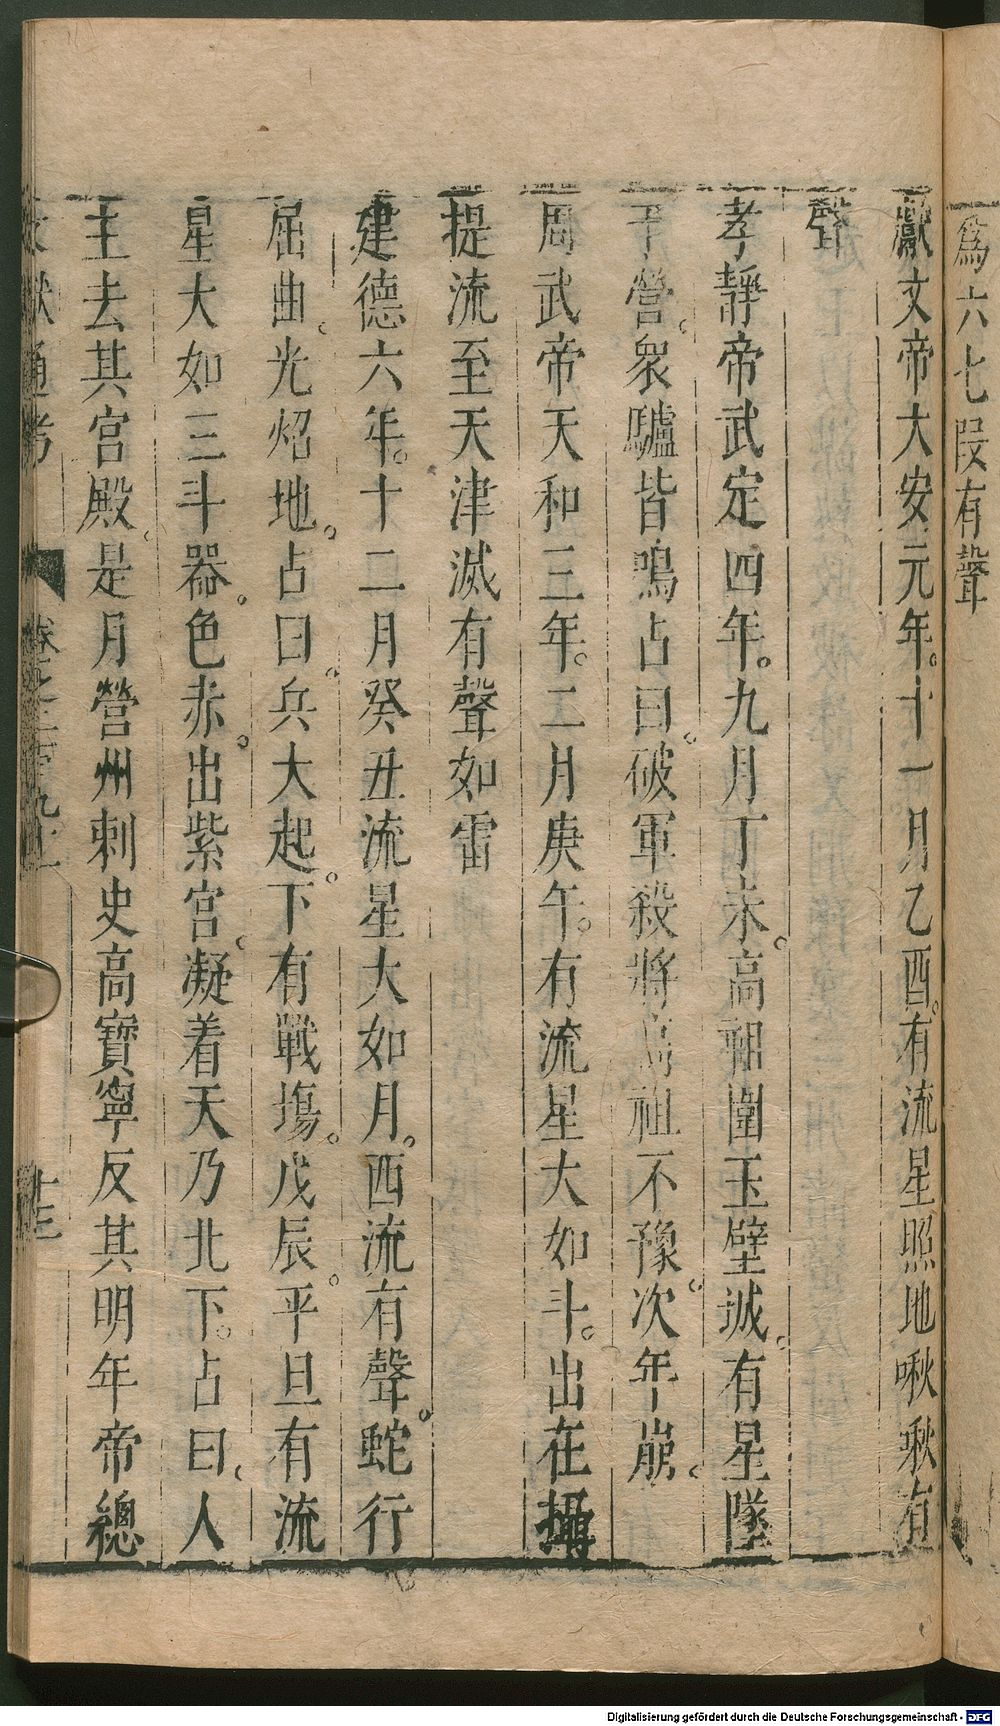 爲六七段有聲
獻文帝大安元年十一月乙酉有流星照地啾啾有
聲
孝靜帝武定四年九月丁未高祖圍玉壁城有星墜
于營衆驢皆鳴占曰破軍殺將高祖不豫次年崩
周武帝天和三年二月庚午有流星大如斗出在攝
提流至天津滅有聲如雷
建德六年十二月癸丑流星大如月西流有聲蛇行
屈曲光炤地占曰兵大起下有戰塲戊辰平旦有流
星大如三斗器色赤出紫宮凝着天乃北下占曰人
主去其宮殿是月營州刺史高寶寧反其明年帝總
文獻通考 卷之二百九十一 十三
Digitalisierung gefördert durch die Deutsche Forschungsgemeinschaft - DFG